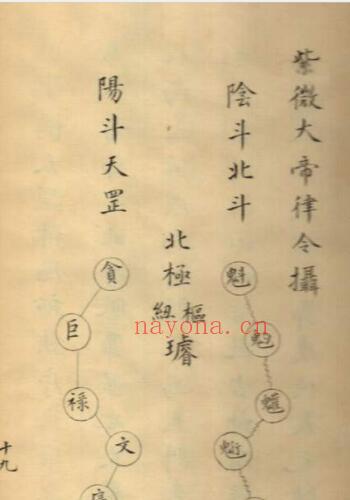 紫微大帝律令攝
陰斗北斗
魁
北極
紐樞
璿
陽斗天罡
貪
巨
祿
文
十九
nayona.cn